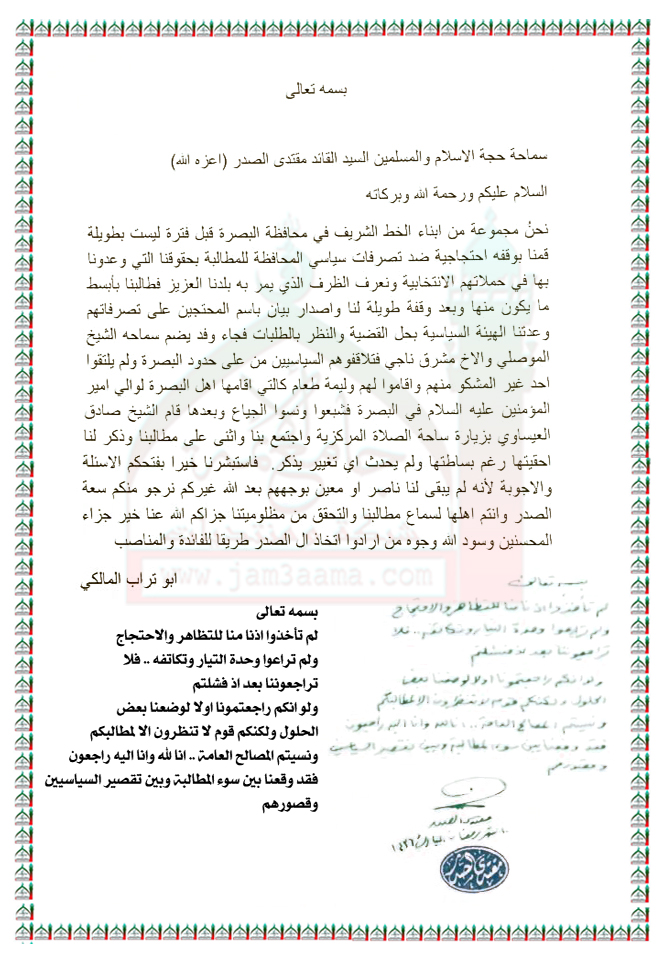 بسمه تعالى
سماحة حجة الاسلام والمسلمين السيد القائد مقتدى الصدر (اعزه الله)
السلام عليكم ورحمة الله وبركاته
نحنُ مجموعة من ابناء الخط الشريف في محافظة البصرة قبل فترة ليست بطويلة
قمنا بوقفه احتجاجية ضد تصرفات سياسي المحافظة للمطالبة بحقوقنا التي وعدونا
بها في حملاتهم الانتخابية ونعرف الظرف الذي يمر به بلدنا العزيز فطالبنا بأبسط
ما يكون منها وبعد وقفة طويلة لنا واصدار بيان باسم المحتجين على تصرفاتهم
وعدتنا الهيئة السياسية بحل القضية والنظر بالطلبات فجاء وفد يضم سماحه الشيخ
الموصلي والاخ مشرق ناجي فتلاقفوهم السياسيين من على حدود البصرة ولم يلتقوا
احد غير المشكو منهم واقاموا لهم وليمة طعام كالتي اقامها اهل البصرة لوالي امير
المؤمنين عليه السلام في البصرة فشبعوا ونسوا الجياع وبعدها قام الشيخ صادق
العيساوي بزيارة ساحة الصلاة المركزية واجتمع بنا واثنى على مطالبنا وذكر لنا
احقيتها رغم بساطتها ولم يحدث اي تغيير يذكر. فاستبشرنا خيرا بفتحكم الاسئلة
والاجوبة لأنه لم يبقى لنا ناصر او معين بوجههم بعد الله غيركم نرجو منكم سعة
الصدر وانتم اهلها لسماع مطالبنا والتحقق من مظلوميتنا جزاكم الله عنا خير جزاء
المحسنين وسود الله وجوه من ارادوا اتخاذ ال الصدر طريقا للفائدة والمناصب
ابو تراب المالكي
www.jam3aama.com
بسمه تعالى
لم تأخذوا اذنا منا للتظاهر والاحتجاج
ولم تراعوا وحدة التيار وتكاتفه .. فلا
تراجعوننا بعد اذ فشلتم
ولو انكم راجعتمونا اولا لوضعنا بعض
الحلول ولكنكم قوم لا تنظرون الا لمطالبكم
ونسيتم المصالح العامة .. انا لله وانا اليه راجعون
فقد وقعنا بين سوء المطالبة وبين تقصير السياسيين
وقصورهم
بسمه تعالى
لم تأخذوا اذنا منا للتظاهر والاحتجاج
ولم تراعوا وحدة التيار وتكاتفه .. فلا
تراجعوننا بعد اذ فشلتم
ولو انكم راجعتمونا اولا لوضعنا بعض
الحلول ولكنكم قوم لا تنظرون الا لمطالبكم
ونسيتم المصالح العامة .. انا لله وانا اليه راجعون
فقد وقعنا بين سوء المطالبة وبين تقصير السياسيين
وقصورهم
مقتدى الصدر
١٤٣٦
مقتدى الصدر